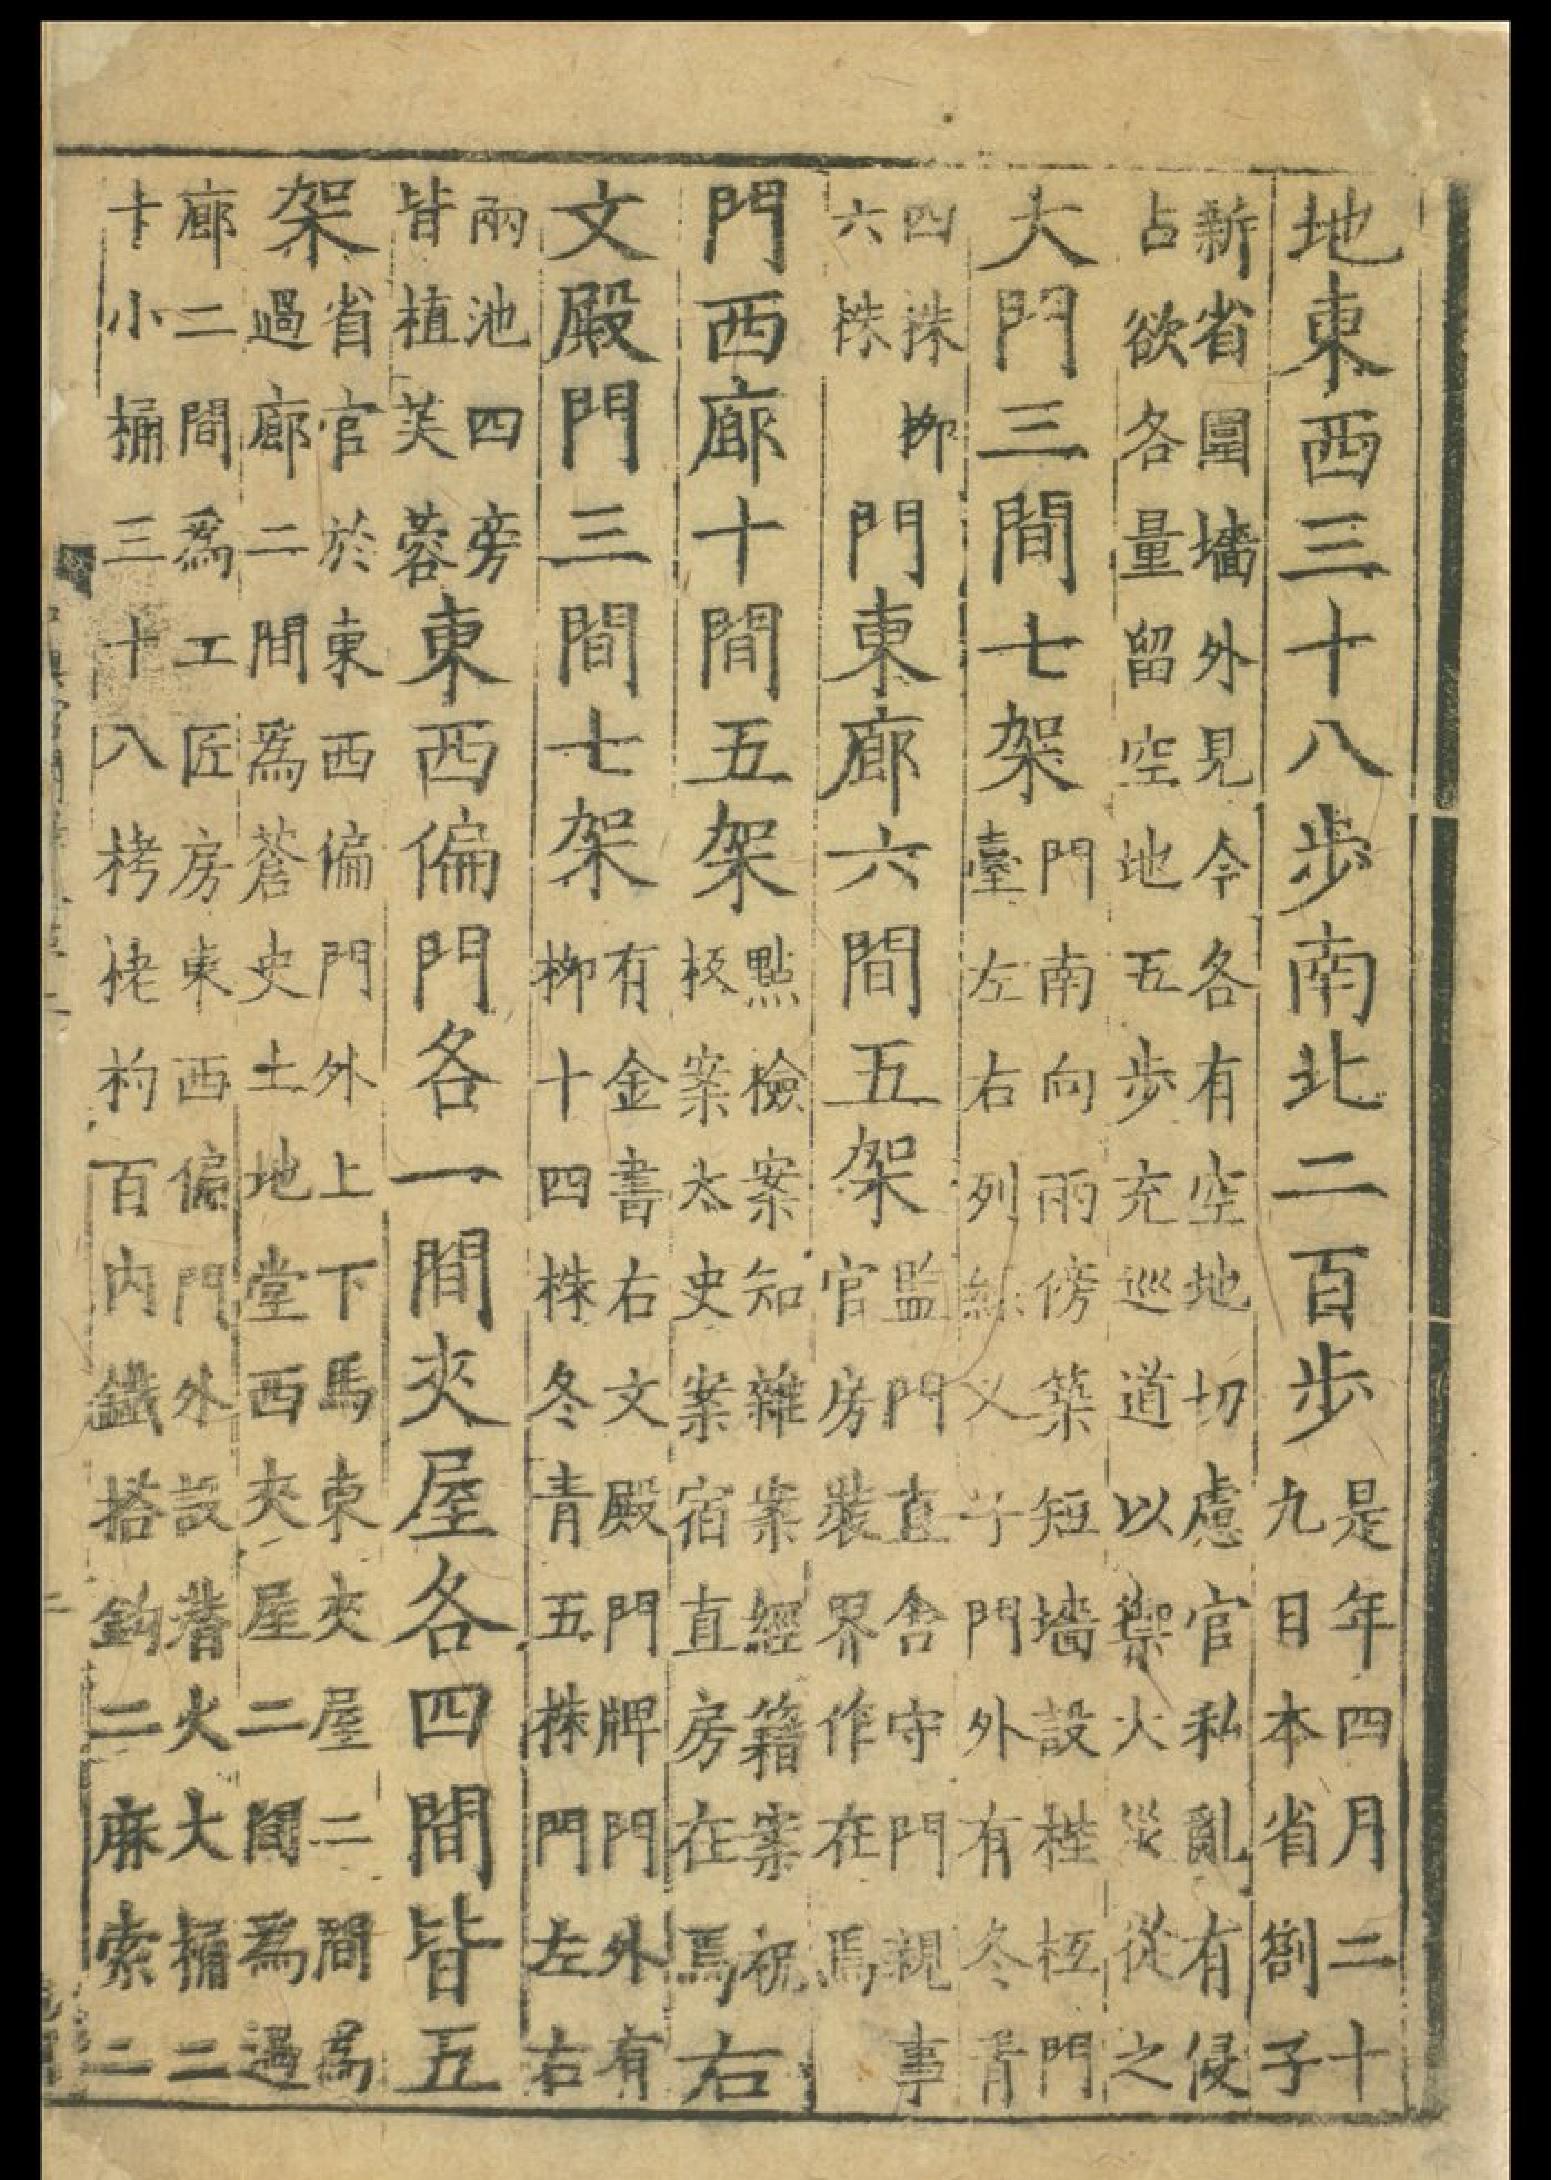 地東西三十八步南北二百步是年四月二十九日本省劄子
新省圍墻外見今各有空地切慮官私亂有侵占欲各量留空地五步充巡道以禦火災從之
大門三間七架門南向兩傍築短墻設梐枑門臺左右列 乂子門外有冬青
四株柳六株門東廊六間五架監門直舍守門親事官房裝界作在焉
門西廊十間五架點檢案知雜案經籍案祝板案太史案宿直房在焉右
文殿門三間七架有金書右文殿門牌門外有柳十四株冬青五株門左右
兩池四旁皆植芙蓉東西偏門各一間夾屋各四間皆五
架省官於東西偏門外上下馬東夾屋二間為過廊二間為蒼史土地堂西夾屋二間為過
廊二間為工匠房東西偏門外設潛火大桶二十小桶三十八栲栳杓百內鐵搭鉤二麻索二